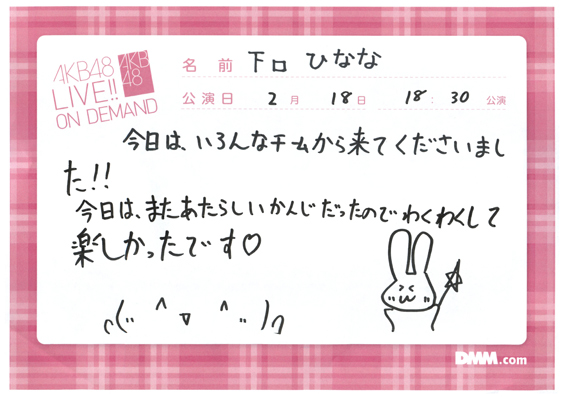 AKB48
LIVE!!
ON DEMAND
AKB
48
名前 下口 ひなな
公演日 2月 18日 18:30 公演
今日は、いろんなチームから来てくださいまし
た!!
今日は、またあたらしいかんじだったのでわくわくして
楽しかったです♡
DMM.com